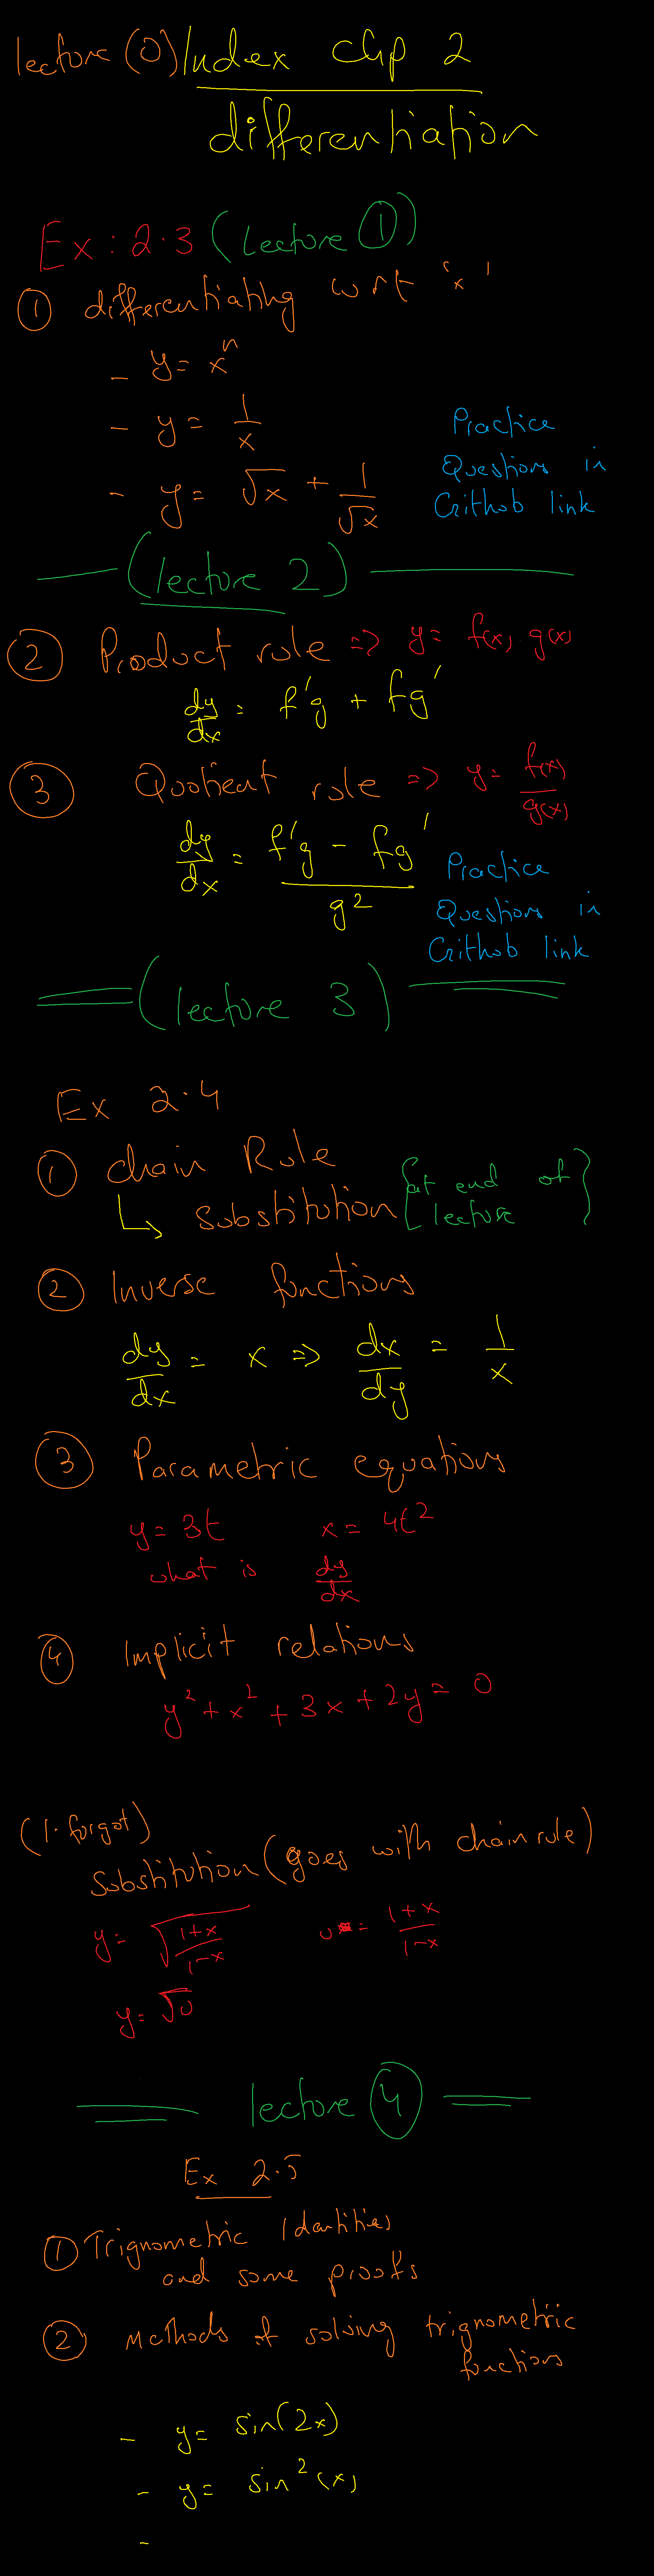 lecture (0) Index chp 2
differentiation
Ex : 2.3 (lecture ①)
① differentiating wrt 'x'
- y = xⁿ
- y = 1/x
- y = √x + 1/√x
Practice
Questions in
Github link
(lecture 2)
② Product rule => y = f(x) . g(x)
dy/dx = f'g + fg'
③ Quotient rule => y = f(x)/g(x)
dy/dx = (f'g - fg')/g²
Practice
Questions in
Github link
(lecture 3)
Ex 2.4
① chain Rule
↳ substitution {at end of lecture}
② Inverse functions
dy/dx = x => dx/dy = 1/x
③ Parametric equations
y = 3t x = 4t²
what is dy/dx
④ Implicit relations
y² + x² + 3x + 2y = 0
(I forgot)
Substitution (goes with chain rule)
y = √((1+x)/(1-x)) u = (1+x)/(1-x)
y = √u
lecture ④
Ex 2.5
① Trignometric Identities
and some proofs
② methods of solving trignometric
functions
- y = sin(2x)
- y = sin²(x)
-